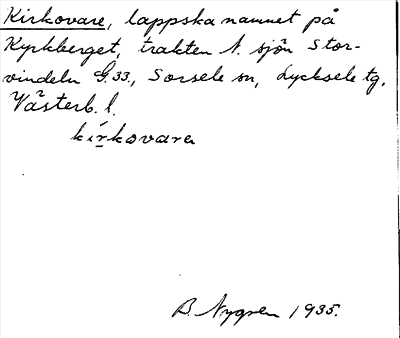 Kirkovare, lappska namnet på
Kyrkberget, trakten N. sjön Stor-
vindeln G. 33., Sorsele sn, Lycksele tg,
Västerb. l.
kirkovarɛ
B. Nygren 1935.